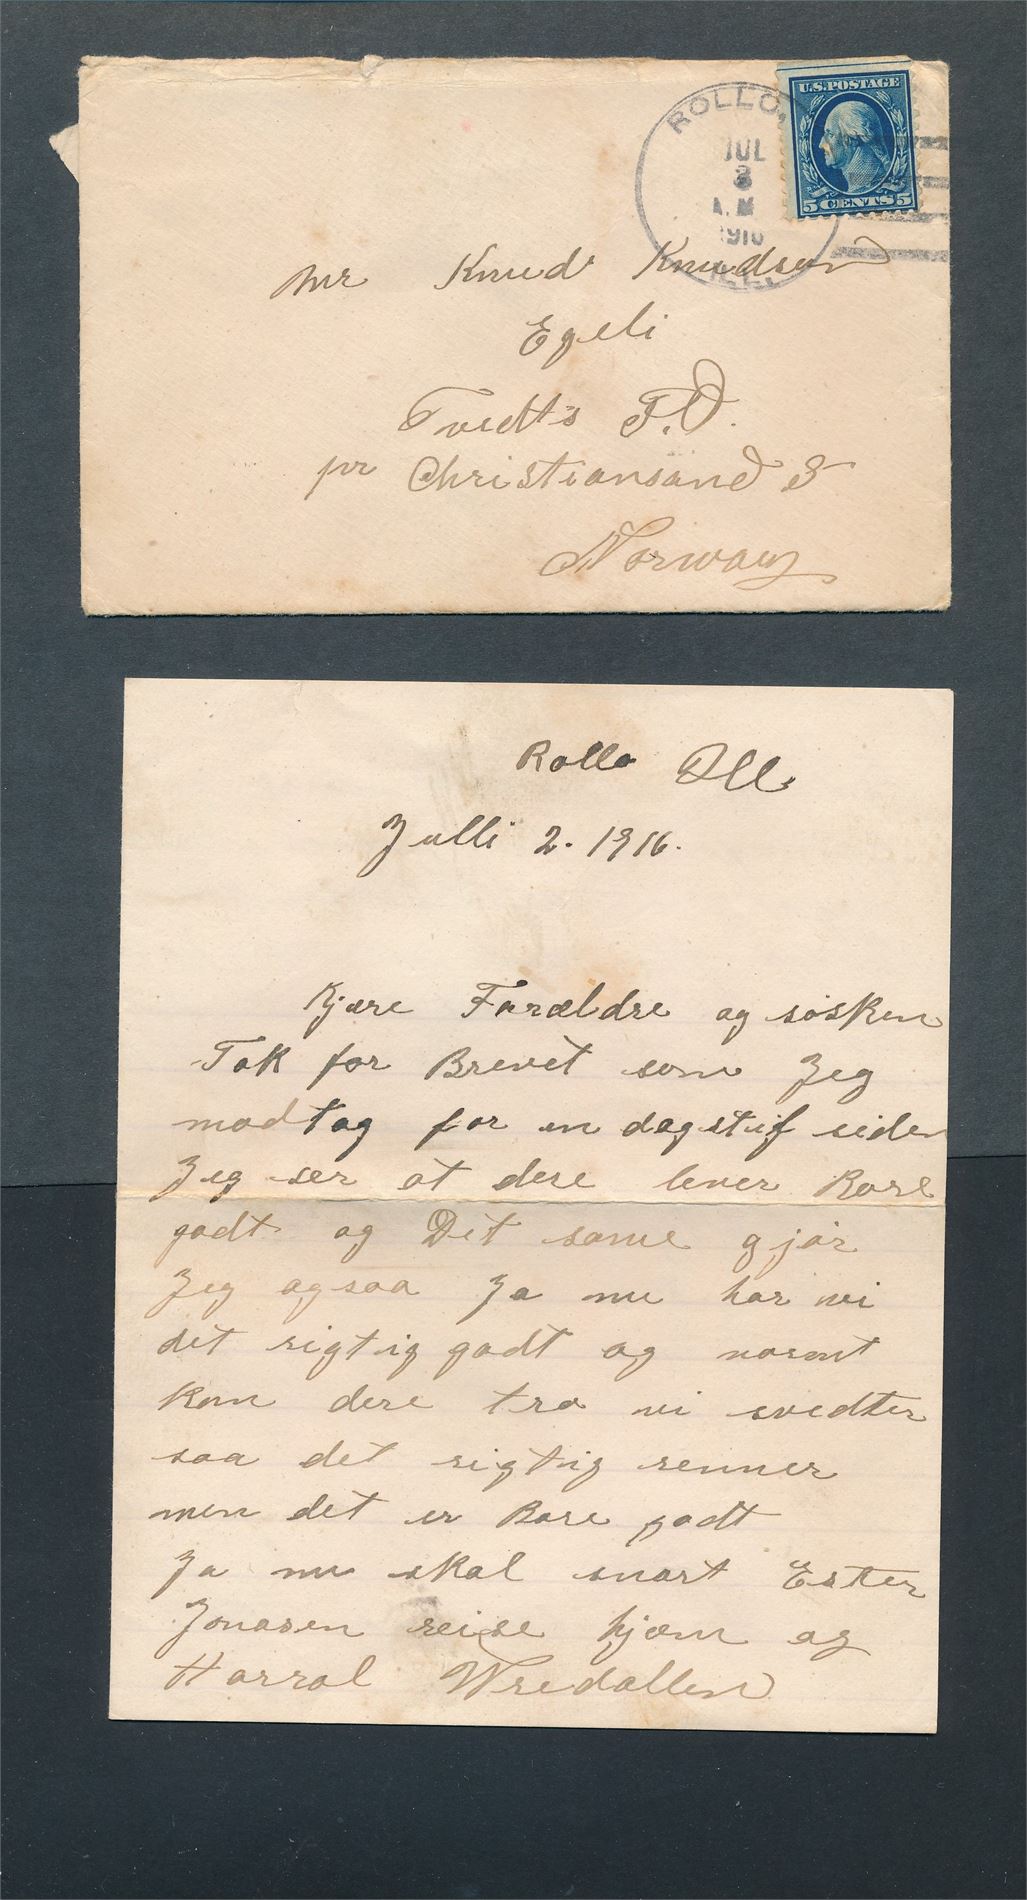 ROLLO,
JUL
3
A.M.
1916
ILL.
U.S. POSTAGE
5 CENTS 5
Mr Knud Knudsen
Egeli
Tvedts P.O.
pr Christiansand S
Norway
Rollo Ill.
Julli 2. 1916.
Kjære Forældre og søsken
Tak for Brevet som Jeg
modtog for en dagstif siden
Jeg ser at dere lever Bare
godt og Det same gjør
Jeg ogsaa Ja nu har vi
det rigtig godt og varmt
kan dere tro vi svedter
saa det rigtig renner
men det er Bare godt
Ja nu skal snart Ester
Jonasen reise hjem og
Harral Wredallen